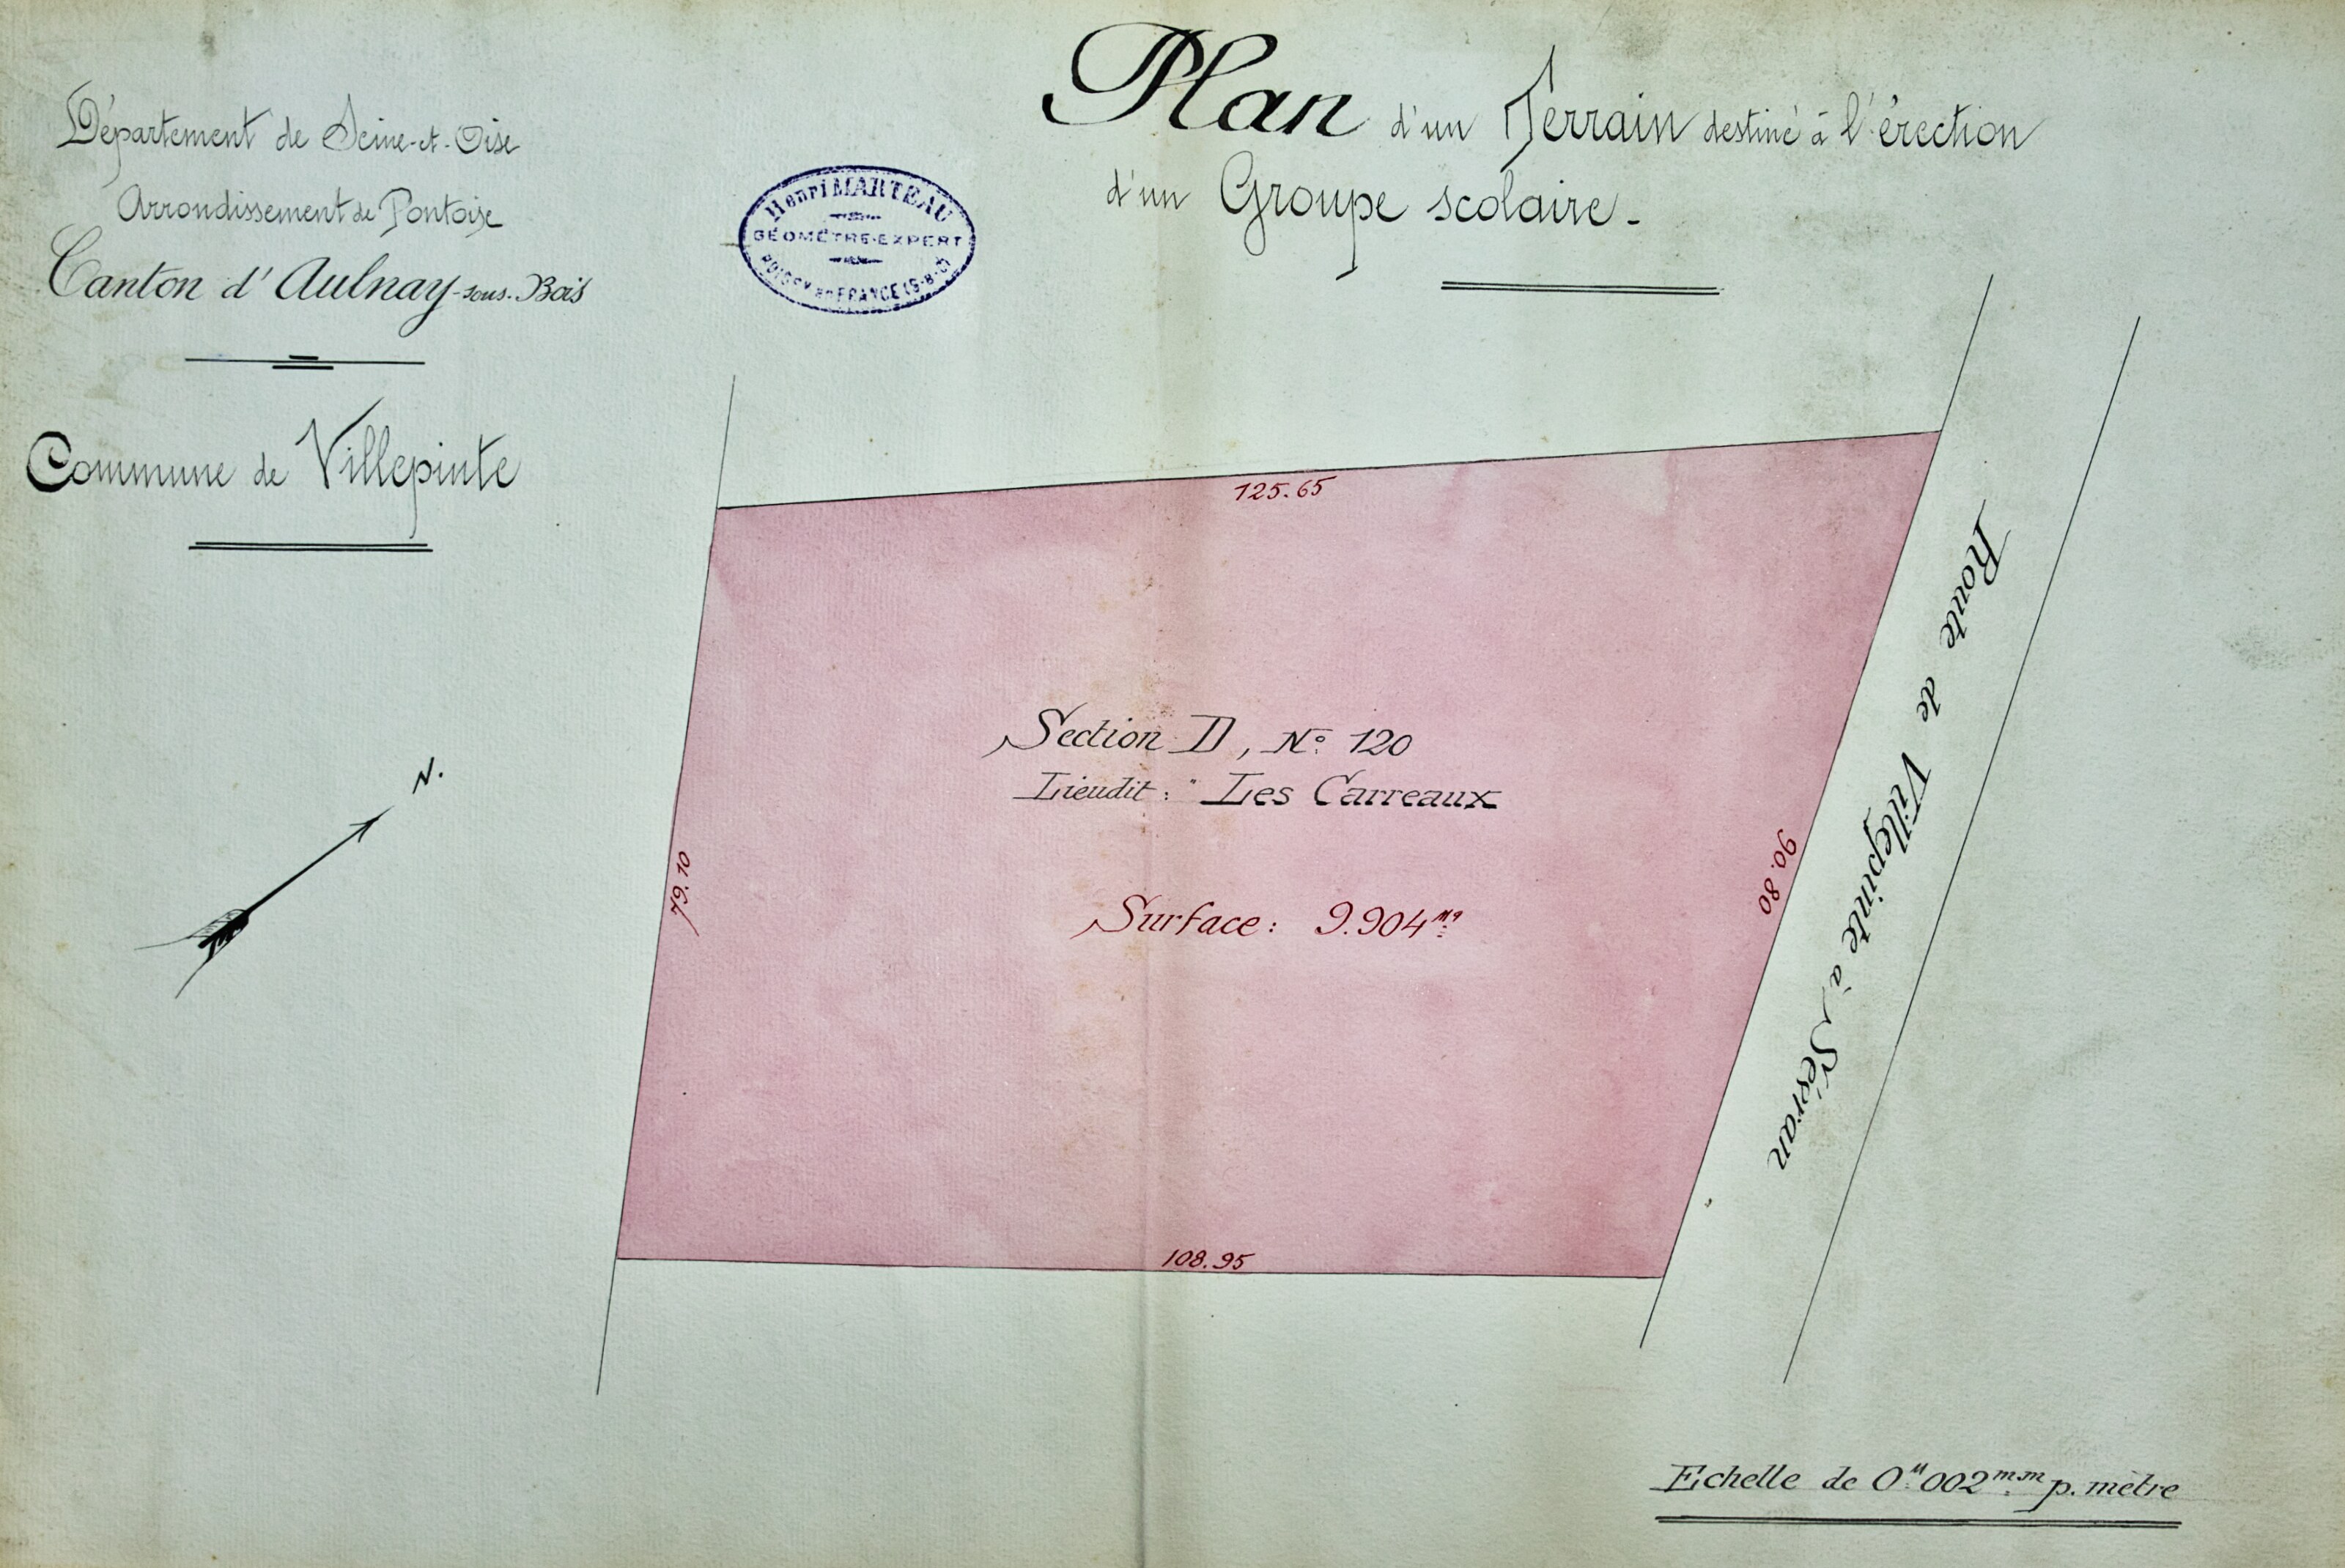 Département de Seine-et-Oise
Arrondissement de Pontoise
Canton d'Aulnay-sous-Bois
Commune de Villepinte
Henri MARTEAU
GÉOMÈTRE-EXPERT
ROISSY en FRANCE (S-&-O)
Plan d'un Terrain destiné à l'érection
d'un Groupe scolaire-
N.
125.65
79.10
Section D, N° 120
Lieudit: " Les Carreaux
Surface: 9.904mq
90.80
108.95
Route de Villepinte à Sévran
Echelle de 0M002m.m p. mètre